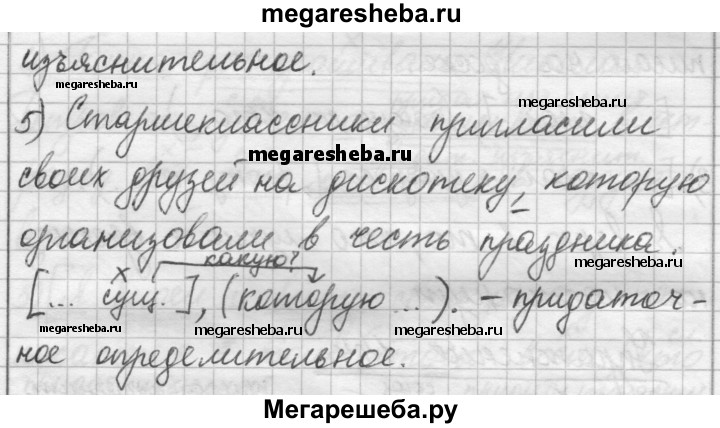 megaresheba.ru
изъяснительное.
megaresheba.ru
megaresheba.ru
5) Старшеклассники пригласили
megaresheba.ru
своих друзей на дискотеку, которую
организовали в честь праздника.
megaresheba.ru
какую?
х
[... сущ.], (которую ...). - придаточ-
megaresheba.ru
megaresheba.ru
megaresheba.ru
ное определительное.
Мегарешеба.ру